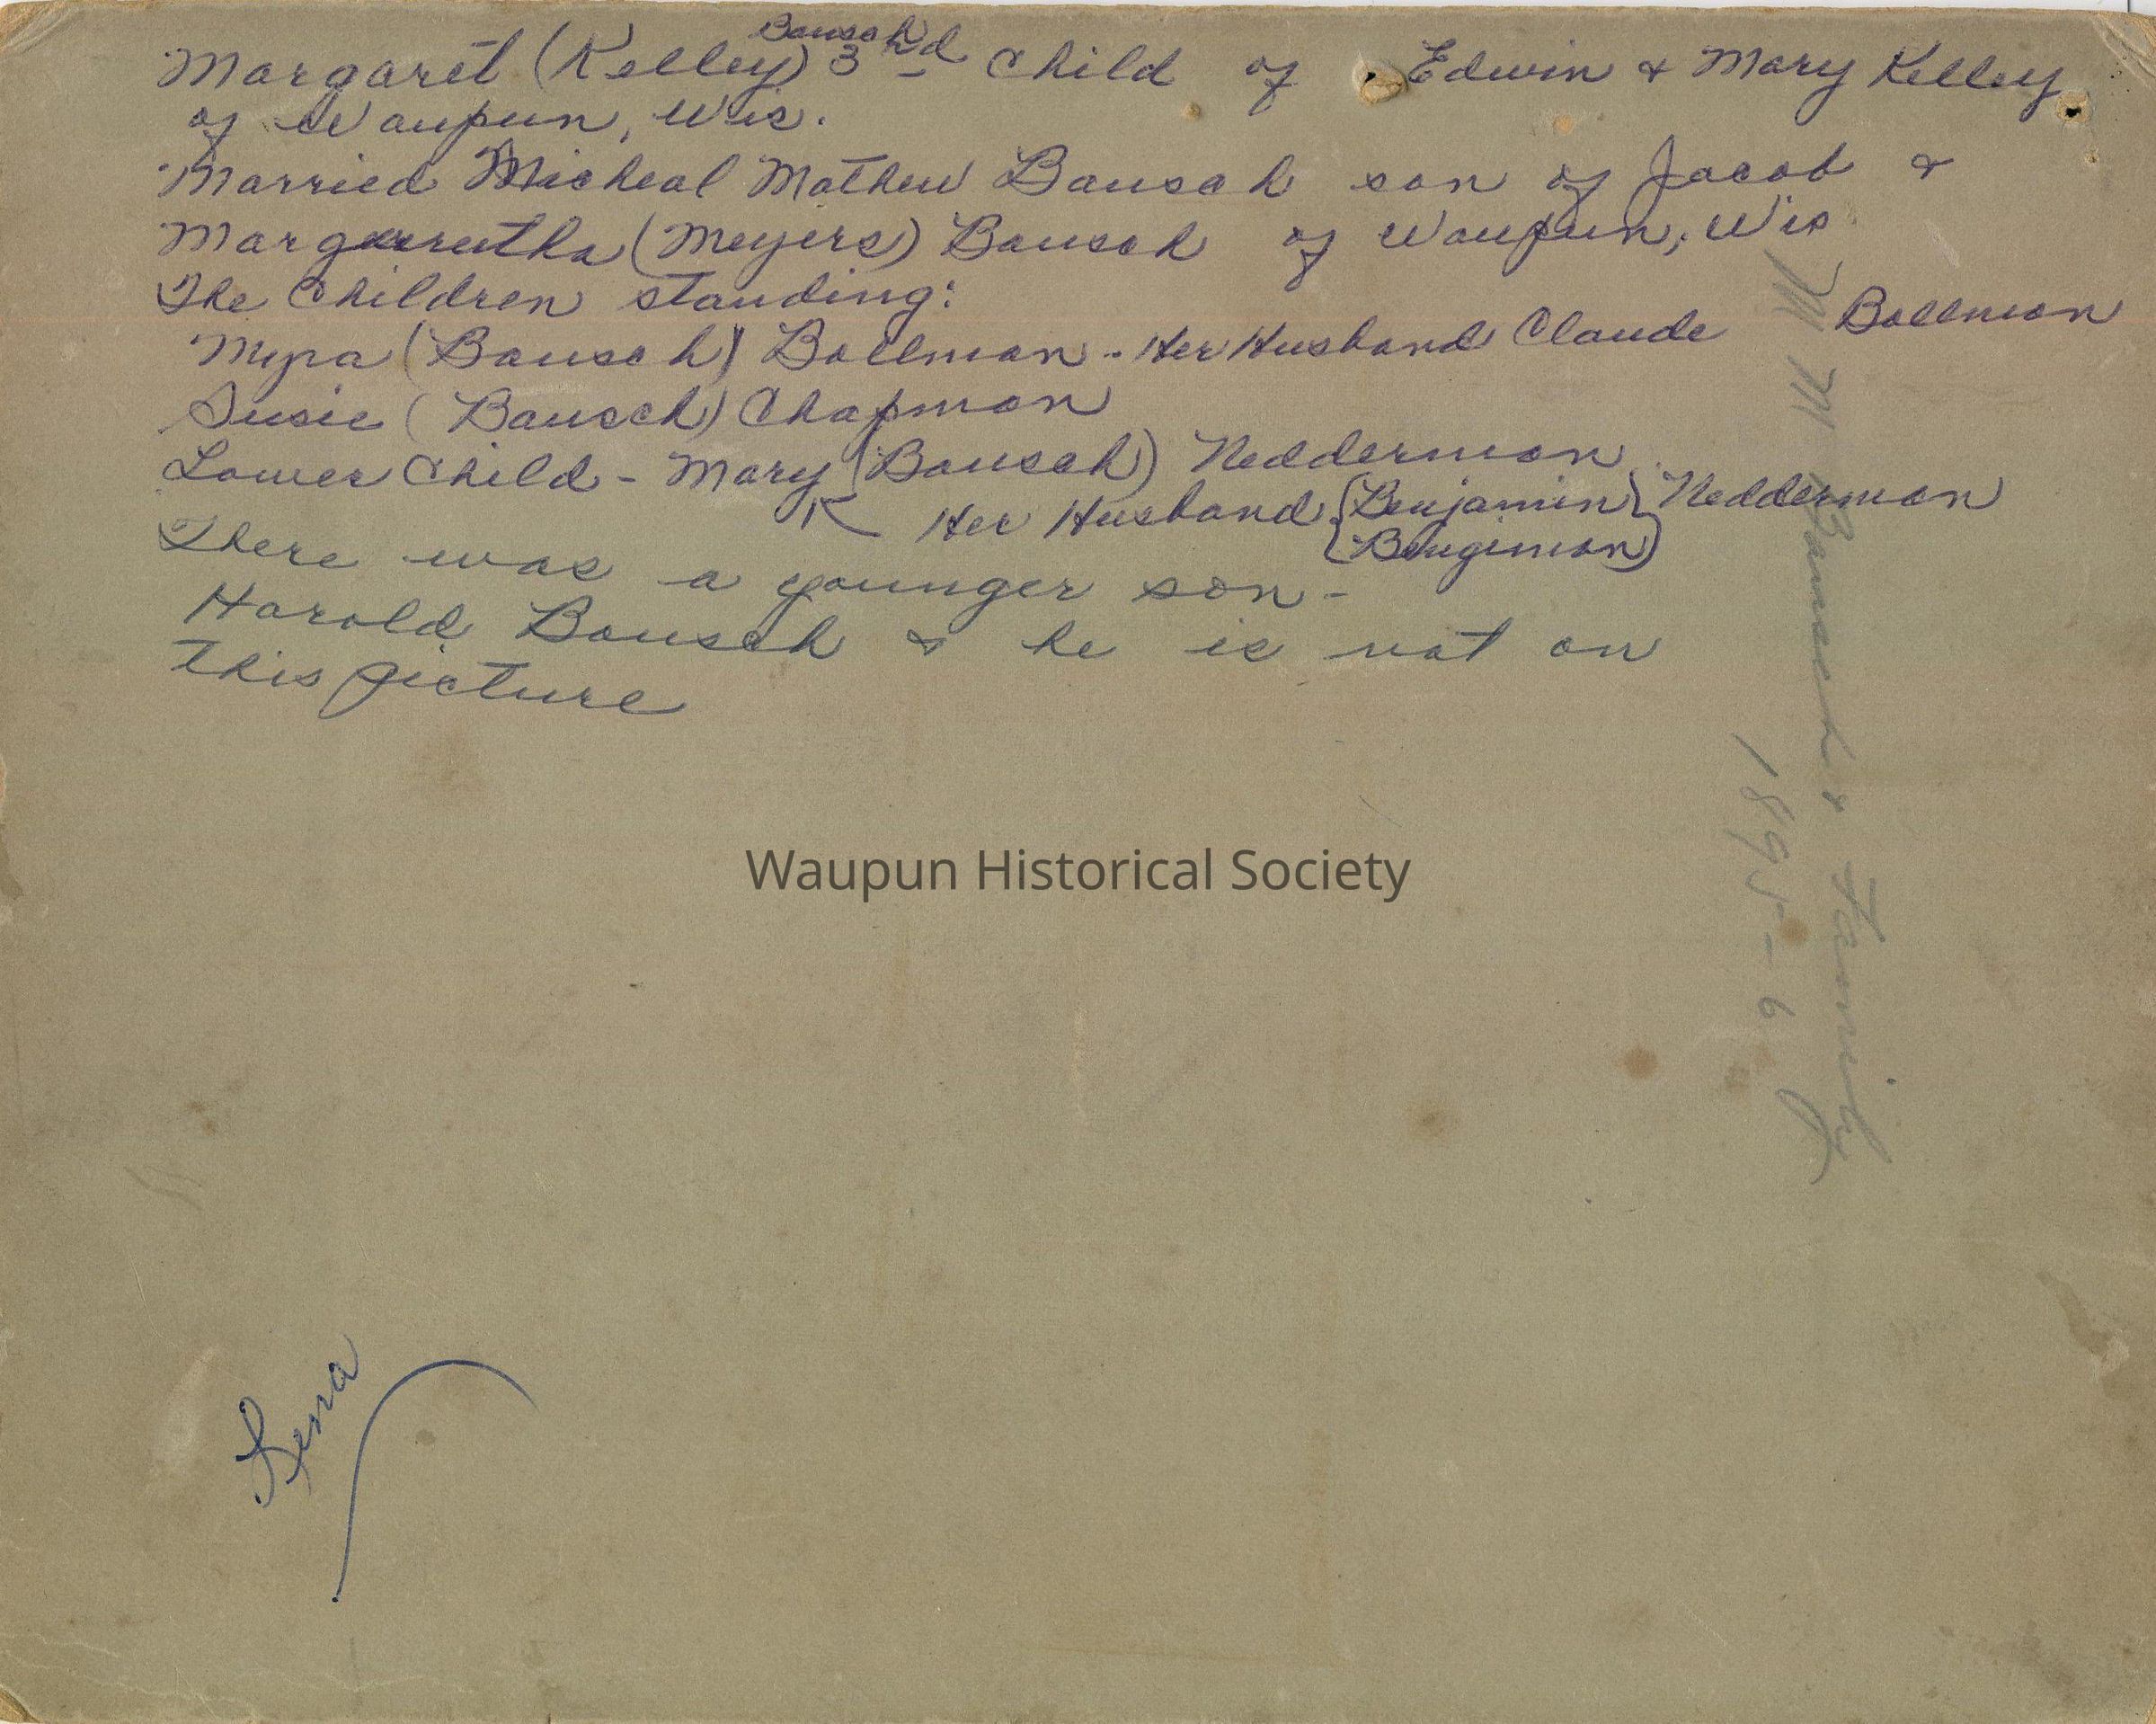 Bausch
Margaret (Kelley) 3rd Child of Edwin & Mary Kelley
of Waupun, Wis.
Married Micheal Mathew Bausch son of Jacob &
Margarutha (Meyers) Bausch of Waupun, Wis
The Children standing:
Myra (Bausch) Bollman - Her Husband Claude Bollman
Susie (Bausch) Chapman
Lower Child - Mary (Bausch) Nedderman
Her Husband {Benjamin} Nedderman
{Bengiman}
There was a younger son -
Harold Bausch & he is not on
this picture
M M Bausch & Family
1895-6
Waupun Historical Society
Lena